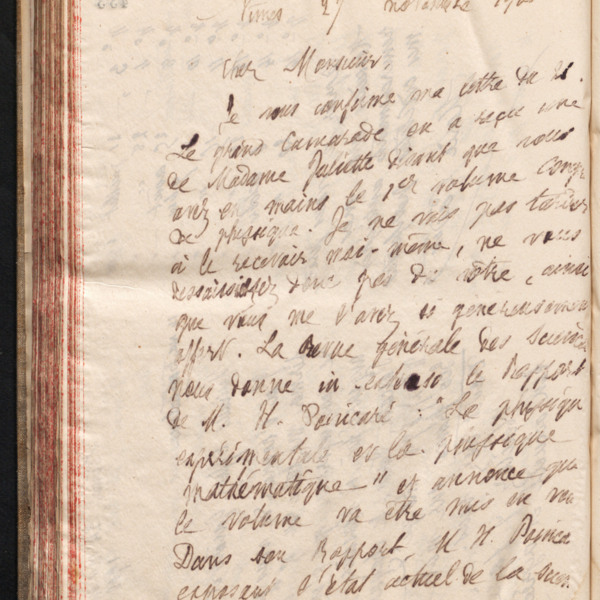 Nîmes 27 novembre
Cher Monsieur,
Je vous confirme ma lettre du 21.
Le grand Camarade en a reçu une
de Madame Juliette disant que vous
avez en mains le 1er volume Congr
de physique. Je ne vais pas tarder
à le recevoir moi-même, ne vous
dessaisissez donc pas du vôtre, ainsi
que vous me l'avez si généreusement
offert. La Revue générale des Sciences
nous donne in extenso le Rapport
de M. H. Poincaré : "La physique
expérimentale et la physique
mathématique" et annonce que
le volume va être mis en ven
Dans son Rapport, M. H. Poinca
exposant l'état actuel de la